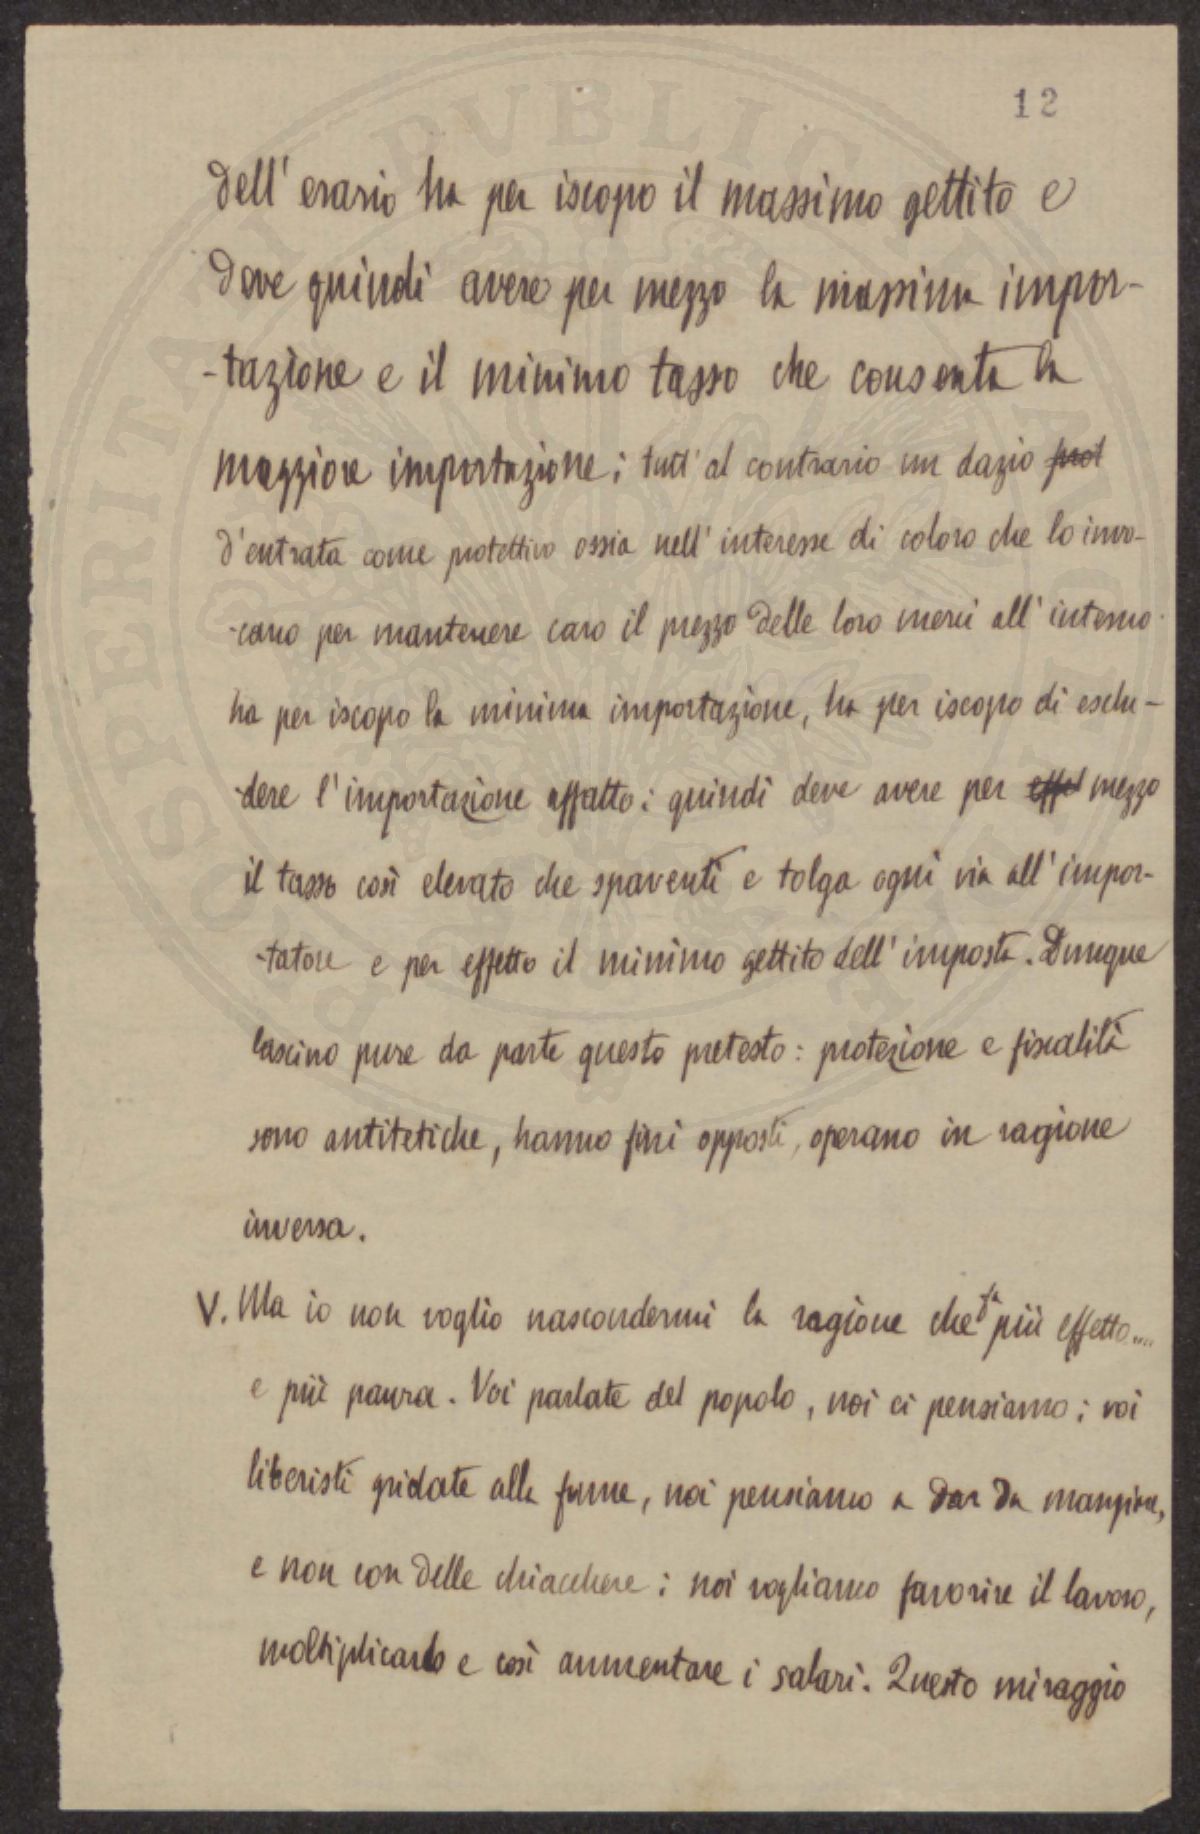 12
dell' erario ha per iscopo il massimo gettito e
deve quindi avere per mezzo la massima impor-
-tazione e il minimo tasso che consenta la
maggiore importazione; tutt' al contrario un dazio prot
d'entrata come protettivo ossia nell' interesse di coloro che lo invo-
-cano per mantenere caro il prezzo delle loro merci all' interno
ha per iscopo la minima importazione, ha per iscopo di esclu-
-dere l'importazione affatto: quindi deve avere per effet mezzo
il tasso così elevato che spaventi e tolga ogni via all' impor-
-tatore e per effetto il minimo gettito dell' imposta. Dunque
lascino pure da parte questo pretesto: protezione e fiscalità
sono antitetiche, hanno fini opposti, operano in ragione
inversa.
V. Ma io non voglio nascondermi la ragione che fa più effetto....
e più paura. Voi parlate del popolo, noi ci pensiamo; voi
liberisti gridate alla fame, noi pensiamo a dar da mangiare,
e non con delle chiacchere: noi vogliamo favorire il lavoro,
moltiplicarlo e così aumentare i salari. Questo miraggio
PROSPERITATI PVBLICAE